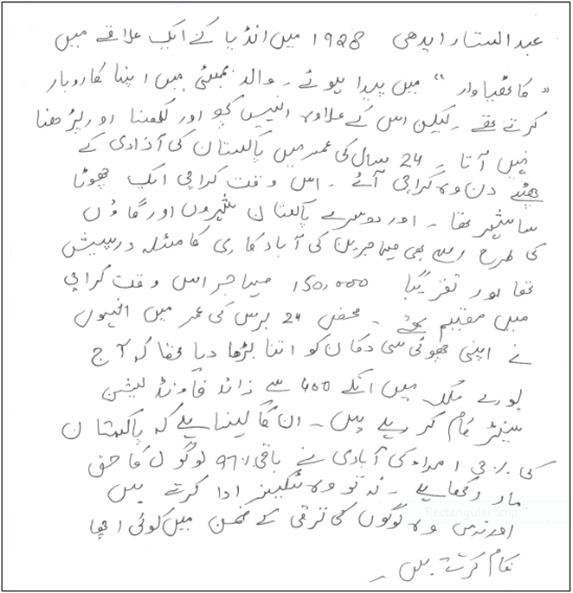 عبدالستار ایدھی 1928 میں انڈیا کے ایک علاقے میں
"کاٹھیاوار" میں پیدا ہوئے۔ والد بمبئی میں اپنا کاروبار
کرتے تھے۔ لیکن اس کے علاوہ انہیں کچھ اور لکھنا اور پڑھنا
نہیں آتا۔ 24 سال کی عمر میں پاکستان کی آذادی کے
چھٹے دن وہ کراچی آئے۔ اس وقت کراچی ایک چھوٹا
سا شہر تھا۔ اور دوسرے پاکستان شہروں اور گاؤں
کی طرح اسے بھی مہاجرین کی آبادکاری کا مسئلہ درپیش
تھا اور تقریباً 150,000 مہاجر اس وقت کراچی
میں مقیم ہوئے۔ محض 24 برس کی عمر میں انہوں
نے اپنی چھوٹی سی دکان کو اتنا بڑھا دیا تھا کہ آج
پورے ملک میں انکے 400 سے زائد فاونڈیشن
سینٹر کام کر رہے ہیں۔ ان کا کہنا ہے کہ پاکستان
کی امراء کی آبادی نے باقی 97% لوگوں کا حق
مار رکھا ہے۔ نہ تو وہ ٹیکسز ادا کرتے ہیں
اور نہ ہی وہ لوگوں کی ترقی کے ضمن میں کوئی اچھا
کام کرتے ہیں۔
Rectangular Snip